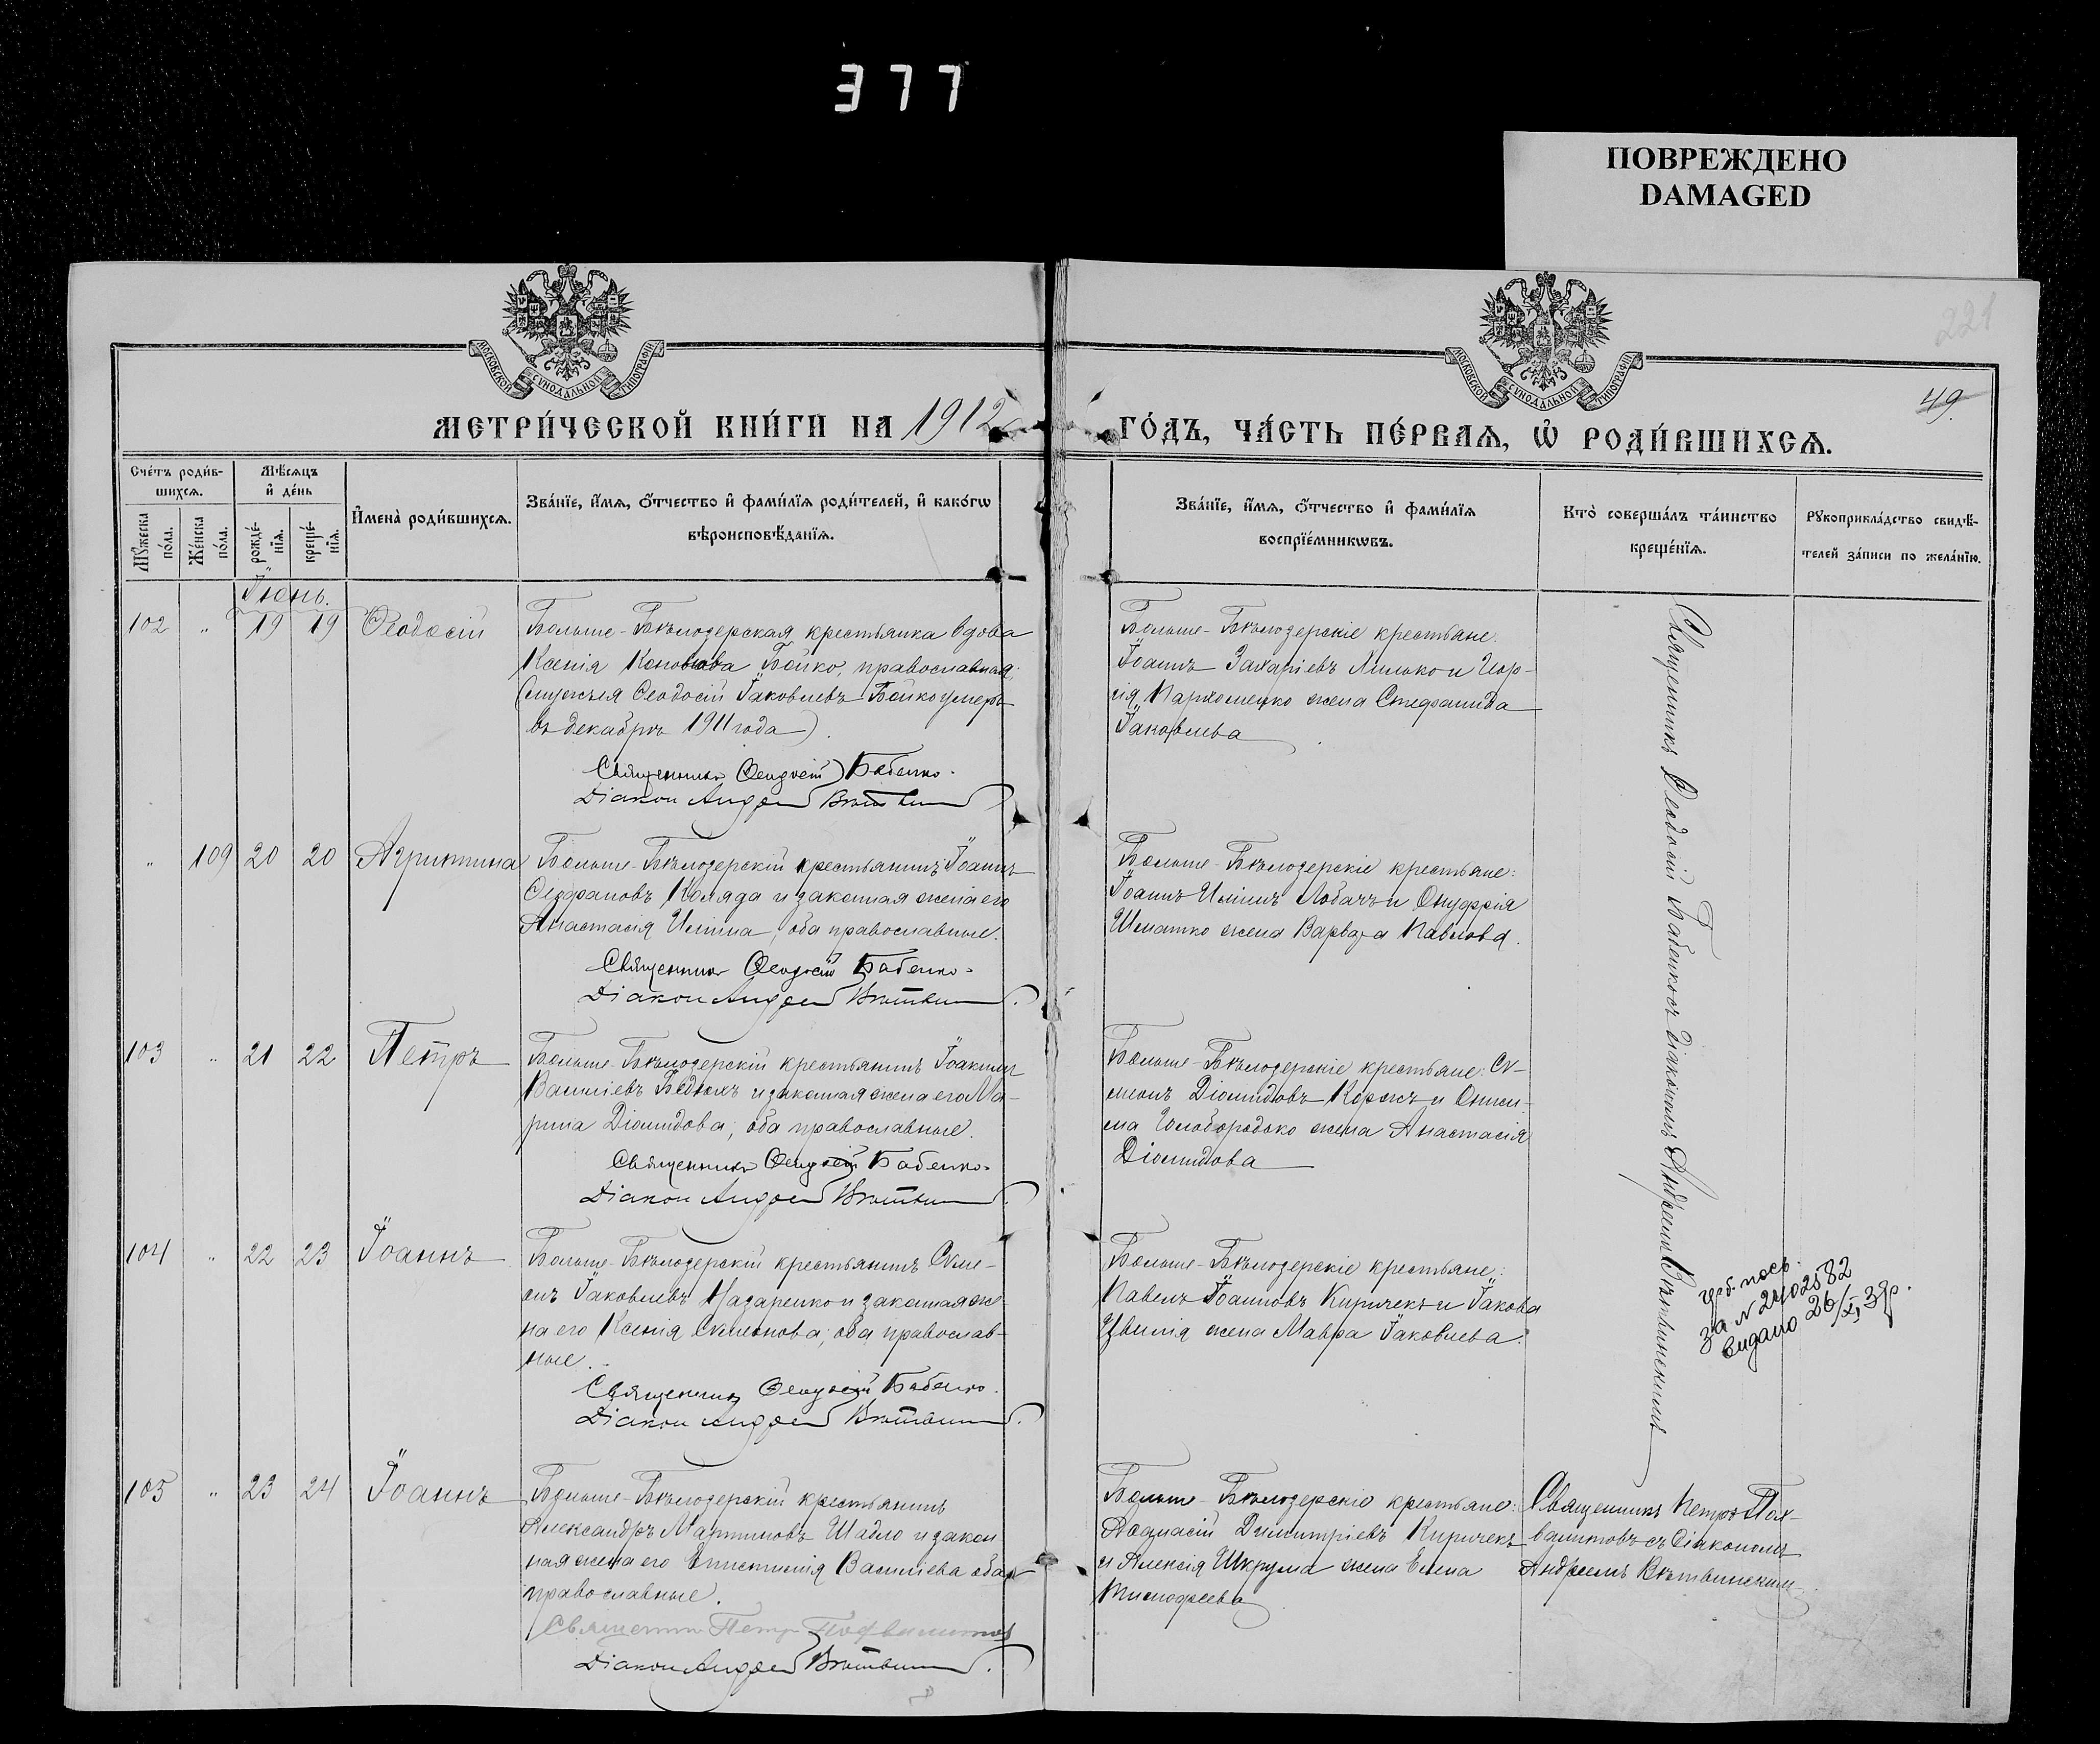 377
ПОВРЕЖДЕНО
DAMAGED
221
49.
МОСКОВСКОЙ СѴНОДАЛЬНОЙ ТИПОГРАФІИ
МОСКОВСКОЙ СѴНОДАЛЬНОЙ ТИПОГРАФІИ
МЕТРИ́ЧЕСКОЙ КНИ́ГИ НА 1912
ГО́ДЪ, ЧА́СТЬ ПЕ́РВАѦ, Ѡ҆ РОДИ́ВШИХСѦ.
Сче́тъ роди́в-
шихсѧ.
Мѣ́сѧцъ
и҆ де́нь
Мꙋ́жеска
по́ла.
Же́нска
по́ла.
рожде́-
нїѧ.
креще́-
нїѧ.
И҆мена̀ роди́вшихсѧ.
Зва́нїе, и҆́мѧ, ѻ҆́тчество и҆ фами́лїѧ роди́телей, и҆ како́гѡ
вѣроисповѣ́данїѧ.
Зва́нїе, и҆́мѧ, ѻ҆́тчество и҆ фами́лїѧ
воспрїе́мникѡвъ.
Кто̀ соверша́лъ та́инство
креще́нїѧ.
Рꙋкоприкла́дство свидѣ́-
телей за́писи по жела́нїю.
Іюнь.
102 " 19 19 Ѳеодосій
Больше-Бѣлозерская крестьянка вдова
Ксенія Кононова Бойко, православная;
(мужъ ея Ѳеодосій Іаковлевъ Бойко умеръ
въ декабрѣ 1911 года).
Священникъ Ѳеодосій Бабенко.
Діаконъ Андрей
Больше-Бѣлозерскіе крестьяне:
Іоаннъ Захаріевъ и Геор-
гія Пархоменко жена Стефанида
Іаковлева
" 109 20 20 Агриппина
Больше-Бѣлозерскій крестьянинъ Іоаннъ
Ѳеофановъ Коляда и законная жена его
Анастасія Иліина, оба православные.
Священникъ Ѳеодосій Бабенко.
Діаконъ Андрей
Больше-Бѣлозерскіе крестьяне:
Іоаннъ Иліинъ Лобачъ и Онуфрія
Шматко жена Варвара Павлова.
103 " 21 22 Петръ
Больше-Бѣлозерскій крестьянинъ Іоакимъ
Василіевъ и законная жена его Ма-
рина Діомидова; оба православные.
Священникъ Ѳеодосій Бабенко.
Діаконъ Андрей
Больше-Бѣлозерскіе крестьяне: Си-
меонъ Діомидовъ Коржъ и Ониси-
ма Голобородько жена Анастасія
Діомидова
104 " 22 23 Іоаннъ
Больше-Бѣлозерскій крестьянинъ Симе-
онъ Іаковлевъ Назаренко и законная же-
на его Ксенія Симеонова; оба православ-
ные.
Священникъ Ѳеодосій Бабенко.
Діаконъ Андрей
Больше-Бѣлозерскіе крестьяне:
Павелъ Іоанновъ Киричекъ и Іакова
жена Мавра Іаковлева.
Священникъ Ѳеодосій Бабенко съ діакономъ Андреемъ Вѣтвинскимъ
посв.
за № 2402582
видано 26/X, 3 р.
105 " 23 24 Іоаннъ
Больше-Бѣлозерскій крестьянинъ
Александръ Мартиновъ Шадло и закон
ная жена его Епистимія Василіева оба
православные.
Священникъ Петръ
Діаконъ Андрей
Больше-Бѣлозерскіе крестьяне:
Аѳанасій Димитріевъ Киричекъ
и Алексія Шкрума жена Елена
Тимоѳеева
Священникъ Петръ Пол-
съ діакономъ
Андреемъ Вѣтвинскимъ